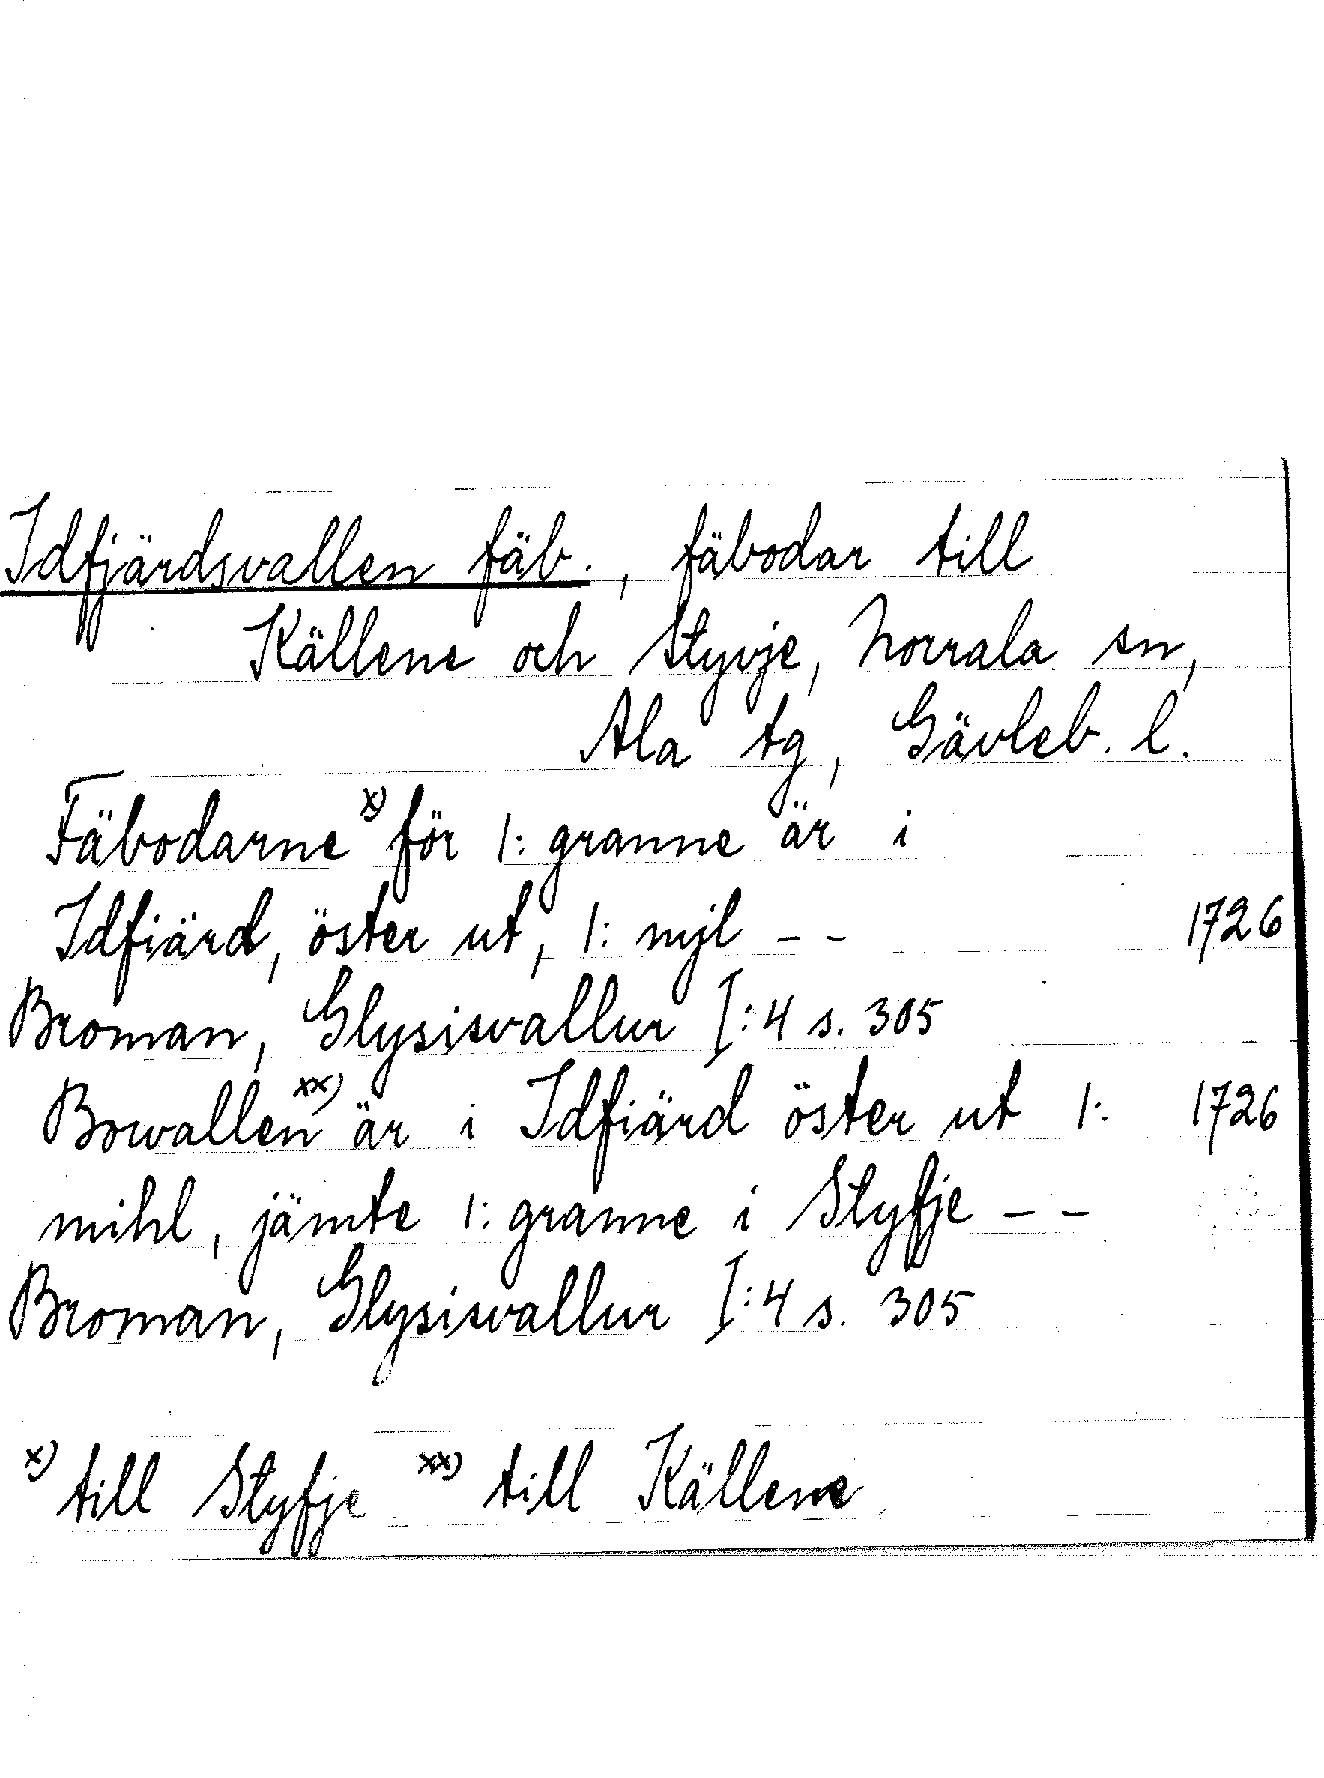 Idfjärdsvallen fäb., fäbodar till
Källene och Styvje, Norrala sn,
Ala tg, Gävleb. l.
Fäbodarne x) för 1: granne är i
Idfiärd, öster ut, 1: mjl - - 1726
Broman, Glysisvallur I:4 s. 305
Bowallen xx) är i Idfiärd öster ut 1: 1726
mihl, jämte 1: granne i Styfje - -
Broman, Glysisvallur I:4 s. 305
x) till Styfje xx) till Källene